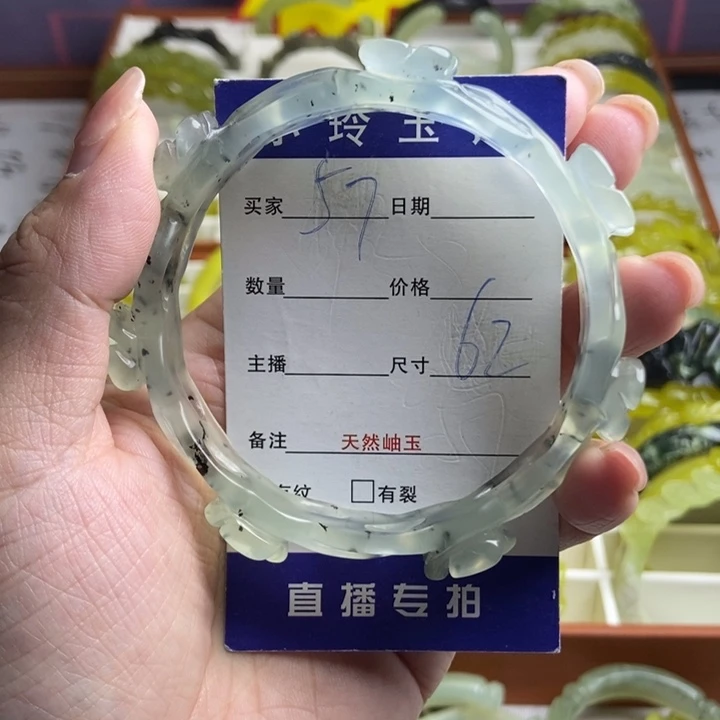 玲玉
买家 57 日期
数量 价格
主播 尺寸 62
备注 天然岫玉
纹 □有裂
直播专拍